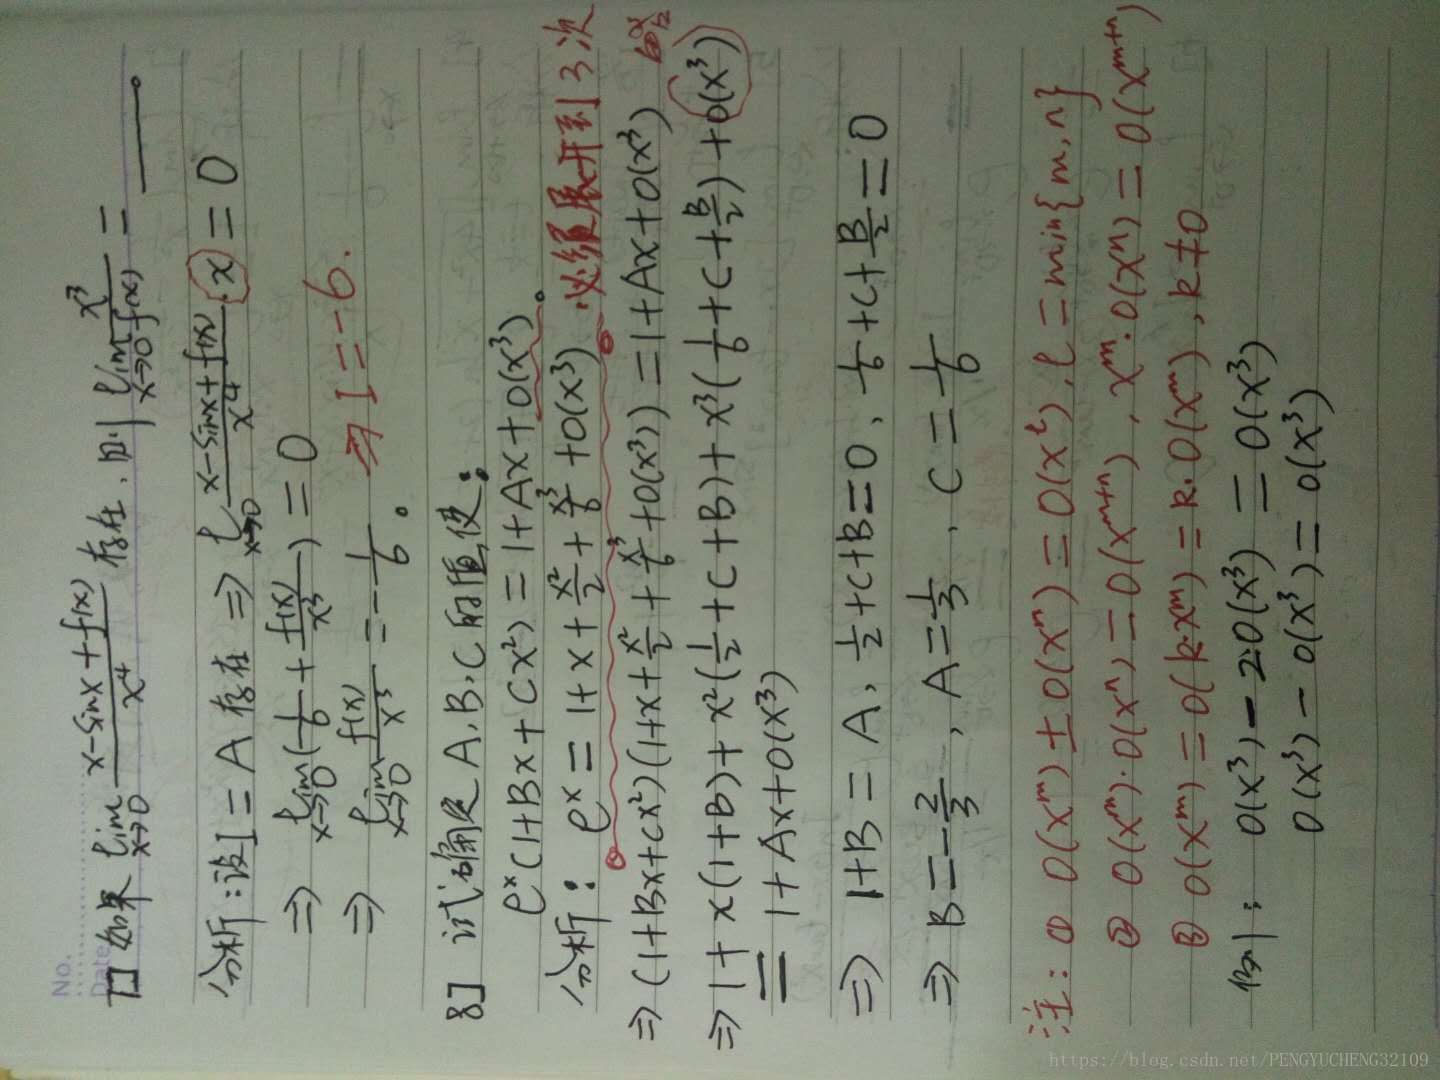 No.
Date
7] 如果 lim x→0 (x-sinx+f(x))/x⁴ 存在,则 lim x→0 x³/f(x) = ____。
分析:设 I = A 存在 ⇒ l x→0 (x-sinx+f(x))/x⁴ · x = 0
⇒ lim x→0 (1/6 + f(x)/x³) = 0
⇒ lim x→0 f(x)/x³ = -1/6。 ⇒ I = -6.
8] 试确定 A,B,C 的值,使:
eˣ(1+Bx+Cx²) = 1+Ax+o(x³)。
分析: eˣ = 1+x+x²/2+x³/6+o(x³) 必须展开到3次
⇒ (1+Bx+Cx²)(1+x+x²/2+x³/6+o(x³)) = 1+Ax+o(x³)
⇒ 1+x(1+B)+x²(1/2+C+B)+x³(1/6+C+B/2)+o(x³)
= 1+Ax+o(x³)
⇒ 1+B=A, 1/2+C+B=0, 1/6+C+B/2=0
⇒ B=-2/3, A=1/3, C=1/6
注: ① o(xᵐ)±o(xⁿ)=o(xˡ), l=min{m,n}
② o(xᵐ)·o(xⁿ)=o(xᵐ⁺ⁿ), xᵐ·o(xⁿ)=o(xᵐ⁺ⁿ)
③ o(xᵐ)=o(kxᵐ)=k·o(xᵐ), k≠0
例: o(x³)-2·o(x³)=o(x³)
o(x³)-o(x³)=o(x³)
https://blog.csdn.net/PENGYUCHENG32109